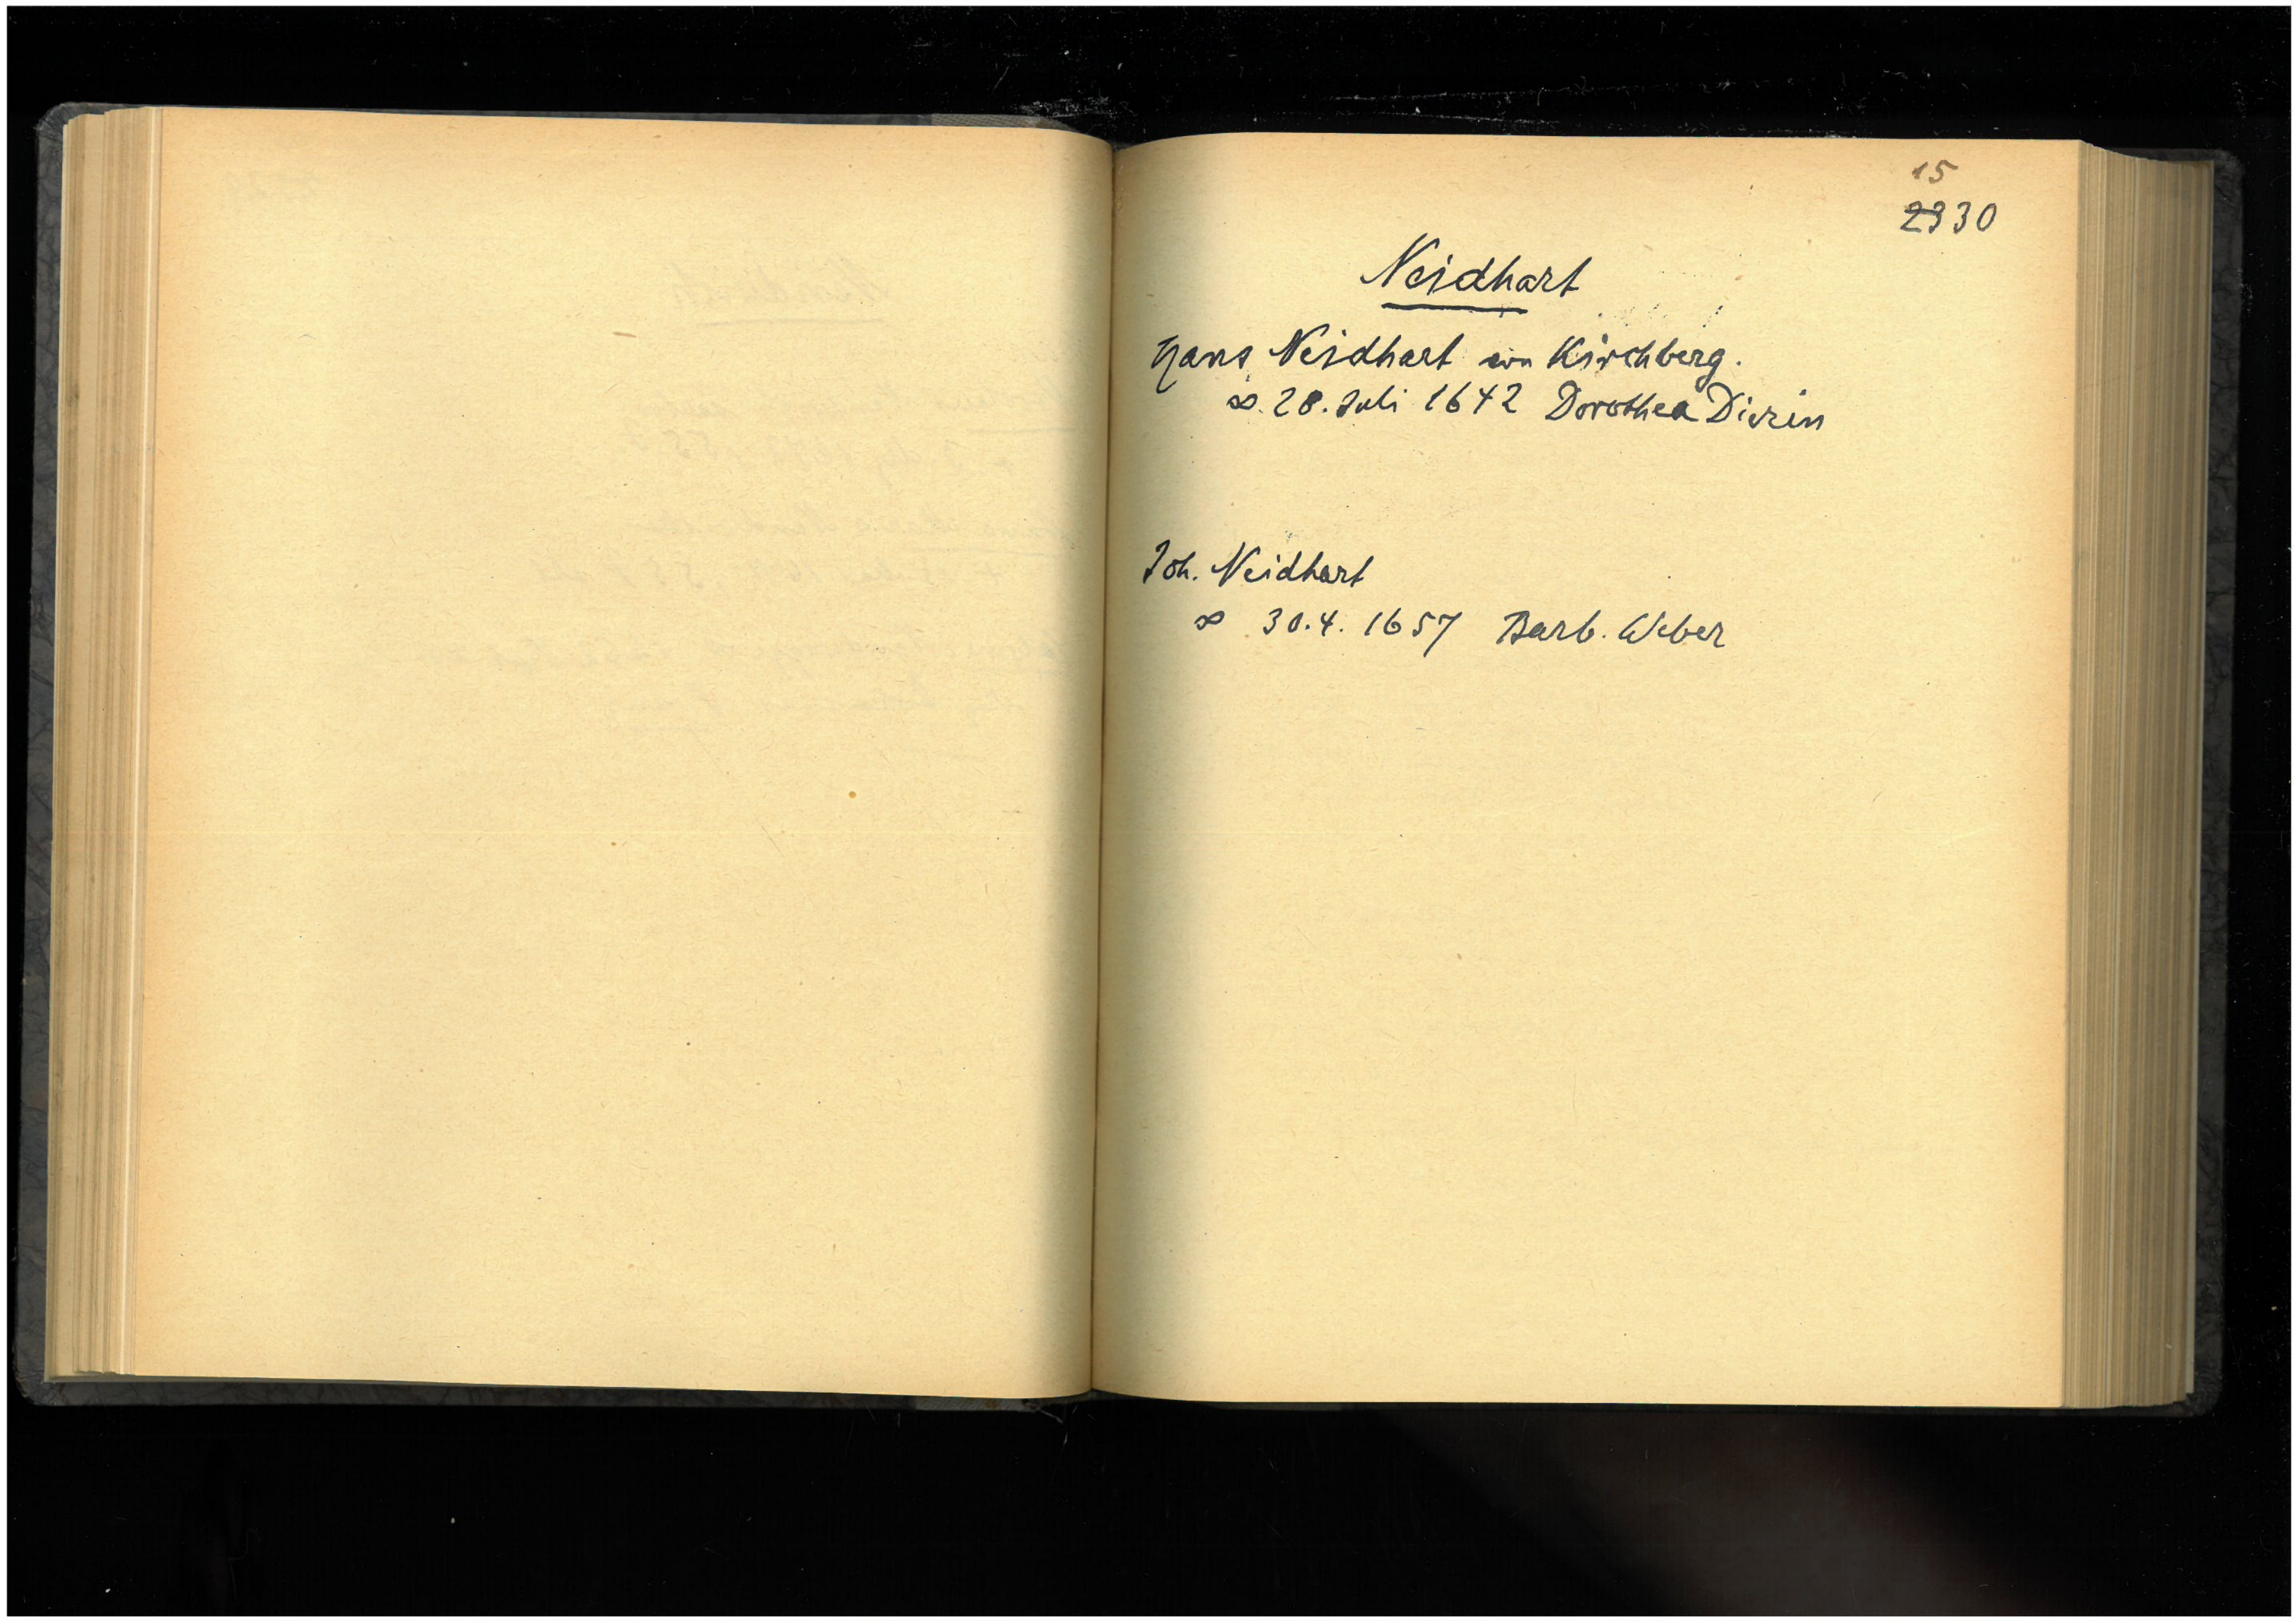 15
29 30
Neidhart
Hans Neidhart von Kirchberg.
∞. 28. Juli 1642 Dorothea
Joh. Neidhart
∞ 30.4. 1657 Barb. Weber